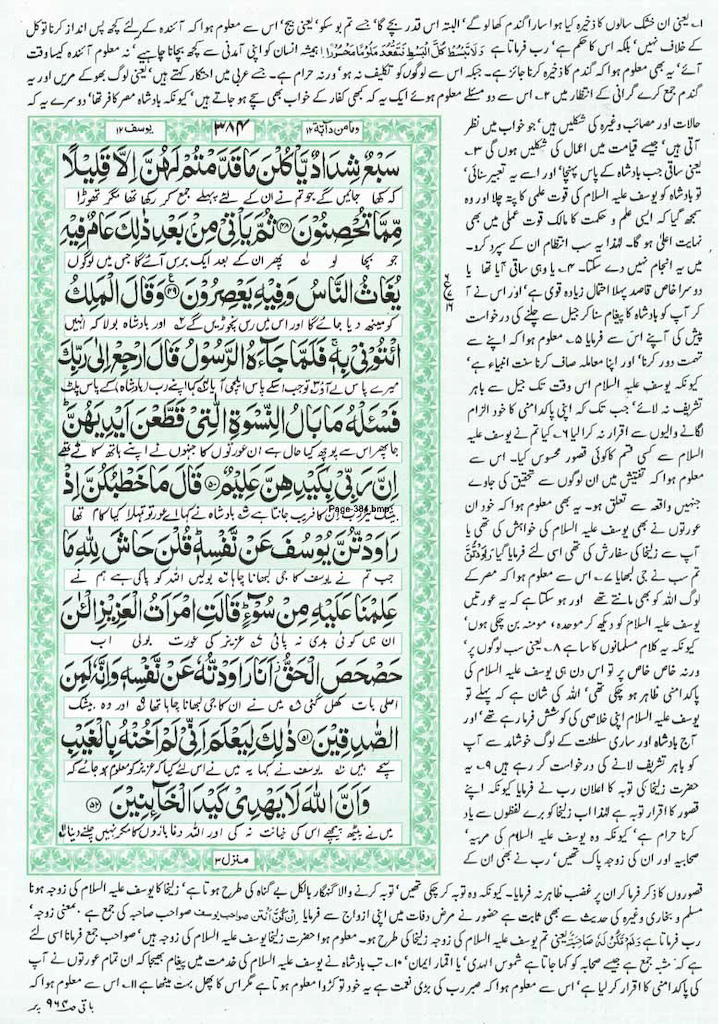 ۱۔ یعنی ان خشک سالوں کا ذخیرہ کیا ہوا سارا گندم کھا لو گے‘ البتہ اس قدر بچے گا‘ جسے تم بو سکو‘ یعنی بیج‘ اس سے معلوم ہوا کہ آئندہ کے لئے کچھ پس انداز کرنا توکل
کے خلاف نہیں‘ بلکہ اس کا حکم ہے‘ رب فرماتا ہے وَلَا تَبْسُطْهَا كُلَّ الْبَسْطِ فَتَقْعُدَ مَلُوْمًا مَّحْسُوْرًا ہمیشہ انسان کو اپنی آمدنی سے کچھ بچانا چاہیے‘ نہ معلوم آئندہ کیسا وقت
آئے‘ یہ بھی معلوم ہوا کہ گندم کا ذخیرہ کرنا جائز ہے۔ جبکہ اس سے لوگوں کو تکلیف نہ ہو‘ ورنہ حرام ہے۔ جسے عربی میں احتکار کہتے ہیں‘ یعنی لوگ بھوکے مریں اور یہ
گندم جمع کرے گرانی کے انتظار میں ۲۔ اس سے دو مسئلے معلوم ہوئے ایک یہ کہ کبھی کفار کے خواب بھی سچے ہو جاتے ہیں‘ کیونکہ بادشاہ مصر کافر تھا‘ دوسرے یہ کہ
حالات اور مصائب وغیرہ کی شکلیں ہیں‘ جو خواب میں نظر
آتی ہیں‘ جیسے قیامت میں اعمال کی شکلیں ہوں گی ۳۔
یعنی ساقی جب بادشاہ کے پاس پہنچا‘ اور اسے یہ تعبیر سنائی‘
تو بادشاہ کو یوسف علیہ السلام کی قوت علمی کا پتہ چلا اور وہ
سمجھ گیا کہ ایسی علم و حکمت کا مالک قوت عملی میں بھی
نہایت اعلیٰ ہو گا۔ لہٰذا یہ سب انتظام ان کے سپرد کرو۔
میں یہ انجام نہیں دے سکتا۔ ۴۔ یا وہی ساقی آیا تھا یا
دوسرا خاص قاصد پہلا احتمال زیادہ قوی ہے‘ اور اس نے آ
کر آپ کو بادشاہ کا پیغام سنا کر جیل سے چلنے کی درخواست
پیش کی آپنے اس سے فرمایا ۵۔ معلوم ہوا کہ اپنے سے
تہمت دور کرنا‘ اور اپنا معاملہ صاف کرنا سنت انبیاء ہے‘
کیونکہ یوسف علیہ السلام اس وقت تک جیل سے باہر
تشریف نہ لائے‘ جب تک کہ اپنی پاکدامنی کا خود الزام
لگانے والیوں سے اقرار نہ کرا لیا ۶۔ کیا تم نے یوسف علیہ
السلام سے کسی قسم کا کوئی قصور محسوس کیا۔ اس سے
معلوم ہوا کہ تفتیش میں ان لوگوں سے تحقیق کی جاوے
جنہیں واقعہ سے تعلق ہو۔ یہ بھی معلوم ہوا کہ خود ان
عورتوں نے بھی یوسف علیہ السلام کی خواہش کی تھی یا
آپ سے زلیخا کی سفارش کی تھی اسی لئے فرمایا گیا رَاوَدْتُّنَّ
تم سب نے جی لبھایا ۷۔ اس سے معلوم ہوا کہ مصر کے
لوگ اللہ کو بھی مانتے تھے اور ہو سکتا ہے کہ یہ عورتیں
یوسف علیہ السلام کو دیکھ کر موحدہ‘ مومنہ بن چکی ہوں‘
کیونکہ یہ کلام مسلمانوں کا سا ہے ۸۔ یعنی سب لوگوں پر‘
ورنہ خاص خاص پر تو اس دن ہی یوسف علیہ السلام کی
پاکدامنی ظاہر ہو چکی تھی‘ اللہ کی شان ہے کہ پہلے تو
یوسف علیہ السلام اپنی خلاصی کی کوشش فرما رہے تھے‘ اور
آج بادشاہ اور ساری سلطنت کے لوگ خوشامد سے آپ
کو باہر تشریف لانے کی درخواست کر رہے ہیں ۹۔ یہ
حضرت زلیخا کی توبہ کا اعلان رب نے فرمایا کیونکہ اپنے
قصور کا اقرار توبہ ہے لہٰذا اب زلیخا کو برے لفظوں سے یاد
کرنا حرام ہے‘ کیونکہ وہ یوسف علیہ السلام کی مربیہ‘
صحابیہ اور ان کی زوجہ پاک تھیں‘ رب نے بھی ان کے
ومامن دآبۃ ۱۲ ۳۸۴ یوسف ۱۲
سَبْعٌ شِدَادٌ يَّاْكُلْنَ مَا قَدَّمْتُمْ لَهُنَّ اِلَّا قَلِيْلًا
کہ کھا جائیں گے جو تم نے ان کے لئے پہلے جمع کر رکھا تھا مگر تھوڑا
مِّمَّا تُحْصِنُوْنَ ﴿۴۸﴾ ثُمَّ يَاْتِيْ مِنْۢ بَعْدِ ذٰلِكَ عَامٌ فِيْهِ
جو بچا لو پھر ان کے بعد ایک برس آئے گا جس میں لوگوں
يُغَاثُ النَّاسُ وَفِيْهِ يَعْصِرُوْنَ ﴿۴۹﴾ وَقَالَ الْمَلِكُ
کو مینھ دیا جائے گا اور اس میں رس نچوڑیں گے اور بادشاہ بولا کہ انہیں
ائْتُوْنِيْ بِهٖ ۚ فَلَمَّا جَآءَهُ الرَّسُوْلُ قَالَ ارْجِعْ اِلٰى رَبِّكَ
میرے پاس لے آؤ تو جب اسکے پاس ایلچی آیا کہا اپنے رب (بادشاہ) کے پاس پلٹ
فَسْـَٔلْهُ مَا بَالُ النِّسْوَةِ الّٰتِيْ قَطَّعْنَ اَيْدِيَهُنَّ ؕ
جا پھر اس سے پوچھ کیا حال ہے ان عورتوں کا جنہوں نے اپنے ہاتھ کاٹے تھے
اِنَّ رَبِّيْ بِكَيْدِهِنَّ عَلِيْمٌ ﴿۵۰﴾ قَالَ مَا خَطْبُكُنَّ اِذْ
بیشک میرا رب ان کا فریب جانتا ہے بادشاہ نے کہا اے عورتو تمہارا کیا کام تھا
Page-384.bmp
رَاوَدْتُّنَّ يُوْسُفَ عَنْ نَّفْسِهٖ ؕ قُلْنَ حَاشَ لِلّٰهِ مَا
جب تم نے یوسف کا جی لبھانا چاہا بولیں اللہ کو پاکی ہے ہم نے
عَلِمْنَا عَلَيْهِ مِنْ سُوْٓءٍ ؕ قَالَتِ امْرَاَتُ الْعَزِيْزِ الْـٰٔنَ
ان میں کوئی بدی نہ پائی عزیز کی عورت بولی اب
حَصْحَصَ الْحَقُّ ؗ اَنَا رَاوَدْتُّهٗ عَنْ نَّفْسِهٖ وَاِنَّهٗ لَمِنَ
اصلی بات کھل گئی میں نے ان کا جی لبھانا چاہا تھا اور وہ بیشک
الصّٰدِقِيْنَ ﴿۵۱﴾ ذٰلِكَ لِيَعْلَمَ اَنِّيْ لَمْ اَخُنْهُ بِالْغَيْبِ
سچے ہیں یوسف نے کہا یہ میں نے اس لئے کیا کہ عزیز کو معلوم ہو جائے کہ
وَاَنَّ اللّٰهَ لَا يَهْدِيْ كَيْدَ الْخَآئِنِيْنَ ﴿۵۲﴾
میں نے پیٹھ پیچھے اس کی خیانت نہ کی اور اللہ دغا بازوں کا مکر نہیں چلنے دیتا
منزل ۳
قصوروں کا ذکر فرما کر ان پر غضب ظاہر نہ فرمایا۔ کیونکہ وہ توبہ کر چکی تھیں‘ توبہ کرنے والا گنہگار بالکل بے گناہ کی طرح ہوتا ہے‘ زلیخا کا یوسف علیہ السلام کی زوجہ ہونا
مسلم و بخاری وغیرہ کی حدیث سے بھی ثابت ہے حضور نے مرض وفات میں اپنی ازواج سے فرمایا اِنَّكُنَّ اَنْتُنَّ صواحب یوسف صواحب صاحبہ کی جمع ہے‘ بمعنی زوجہ‘
رب فرماتا ہے وَلَمْ تَكُنْ لَّهٗ صَاحِبَةٌ یعنی تم یوسف علیہ السلام کی زوجہ زلیخا کی طرح ہو۔ معلوم ہوا حضرت زلیخا یوسف علیہ السلام کی زوجہ ہیں‘ صواحب جمع فرمانا اسی لئے
ہے کہ مشبہ جمع ہے جیسے صحابہ کو کہا جاتا ہے شموس الہدیٰ‘ یا اقمار ایمان‘ ۱۰۔ تب بادشاہ نے یوسف علیہ السلام کی خدمت میں پیغام بھیجا کہ ان تمام عورتوں نے آپ
کی پاکدامنی کا اقرار کر لیا ہے‘ اس سے معلوم ہوا کہ صبر رب کی بڑی نعمت ہے یہ خود تو کڑوا معلوم ہوتا ہے مگر اس کا پھل بہت میٹھا ہے ۱۱۔ اس سے معلوم ہوا کہ
باقی صہ ۹۶۴ پر